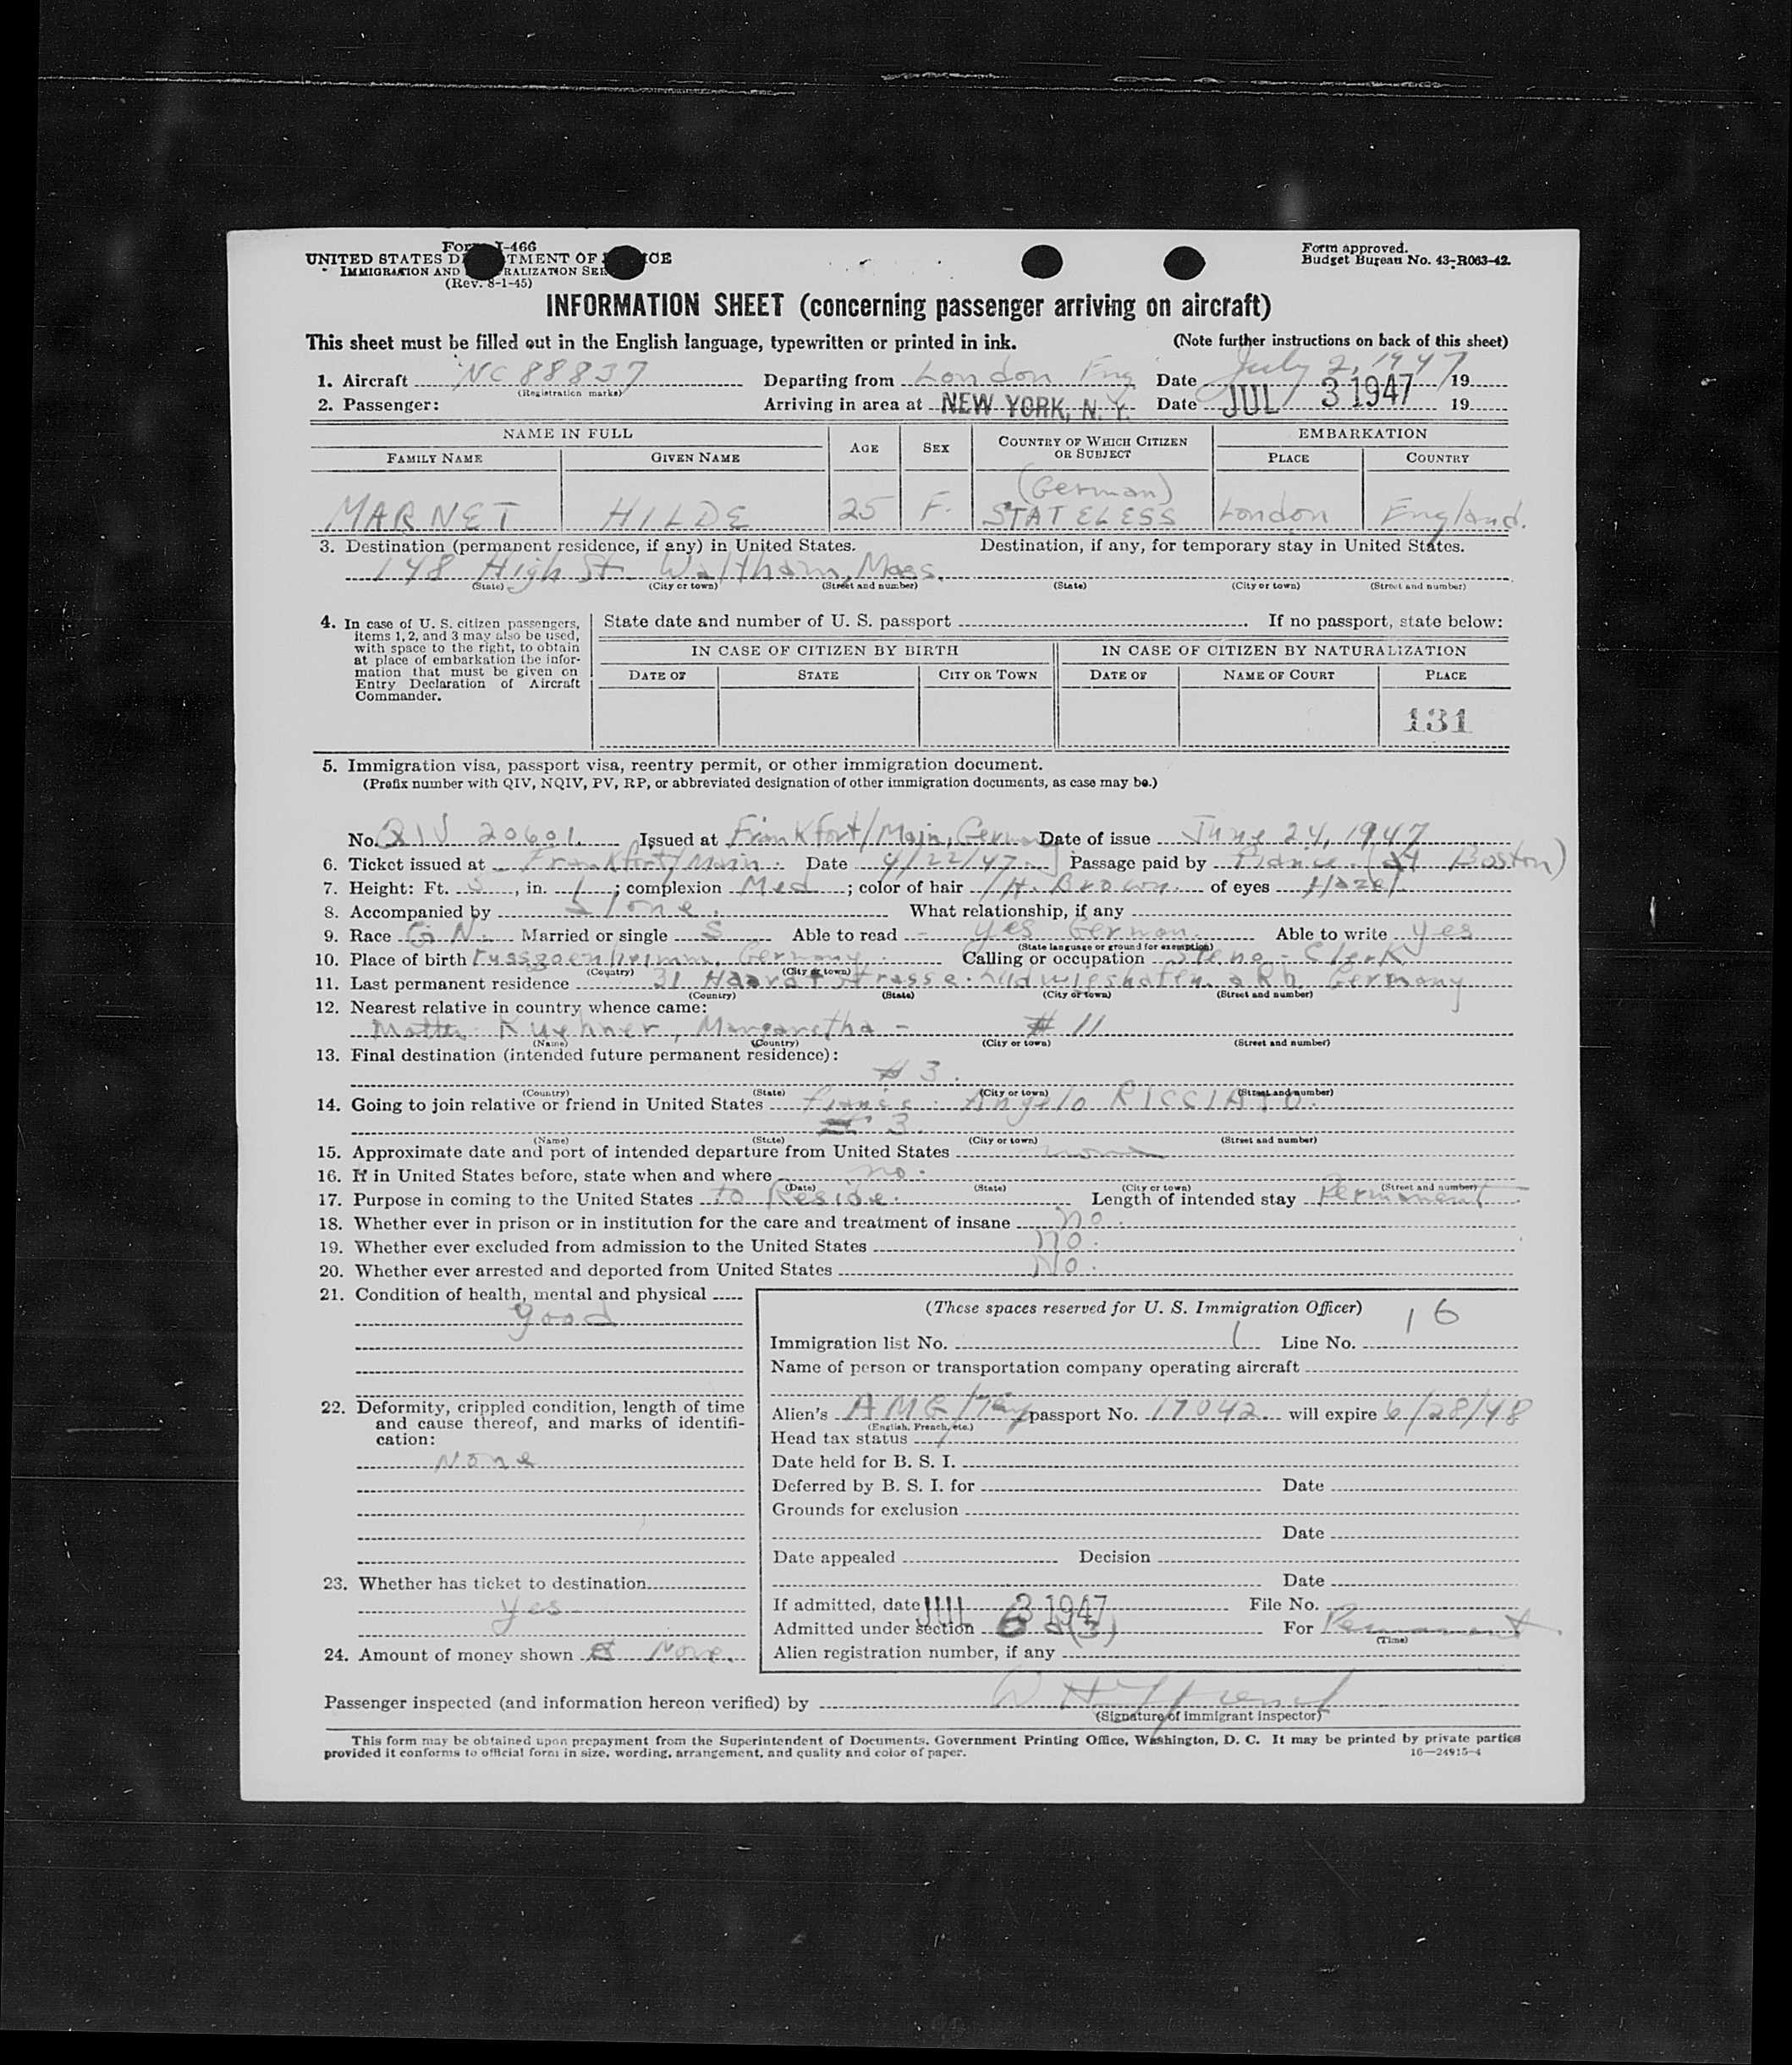 Form I-466
UNITED STATES DEPARTMENT OF JUSTICE
IMMIGRATION AND NATURALIZATION SERVICE
(Rev. 8-1-45)
Form approved.
Budget Bureau No. 43-R063-42.
INFORMATION SHEET (concerning passenger arriving on aircraft)
This sheet must be filled out in the English language, typewritten or printed in ink. (Note further instructions on back of this sheet)
1. Aircraft NC 88837 Departing from London Eng Date July 2, 1947 19
(Registration marks)
2. Passenger: Arriving in area at NEW YORK, N. Y. Date JUL 3 1947 19
NAME IN FULL AGE SEX COUNTRY OF WHICH CITIZEN OR SUBJECT EMBARKATION
FAMILY NAME GIVEN NAME PLACE COUNTRY
MARNET HILDE 25 F. (German) STATELESS London England.
3. Destination (permanent residence, if any) in United States. Destination, if any, for temporary stay in United States.
148 High St. Waltham, Mass.
(State) (City or town) (Street and number) (State) (City or town) (Street and number)
4. In case of U. S. citizen passengers, items 1, 2, and 3 may also be used, with space to the right, to obtain at place of embarkation the information that must be given on Entry Declaration of Aircraft Commander.
State date and number of U. S. passport If no passport, state below:
IN CASE OF CITIZEN BY BIRTH IN CASE OF CITIZEN BY NATURALIZATION
DATE OF STATE CITY OR TOWN DATE OF NAME OF COURT PLACE
131
5. Immigration visa, passport visa, reentry permit, or other immigration document.
(Prefix number with QIV, NQIV, PV, RP, or abbreviated designation of other immigration documents, as case may be.)
No. QIV 20601. Issued at Frankfort/Main, German Date of issue June 24, 1947
6. Ticket issued at Frankfort/Main. Date 4/22/47. Passage paid by Fiance. (at Boston)
7. Height: Ft. 5, in. 1; complexion Med; color of hair lt. Brown. of eyes Hazel.
8. Accompanied by alone. What relationship, if any
9. Race GN. Married or single S Able to read - yes German. Able to write yes
(State language or ground for exemption)
10. Place of birth Germany. Calling or occupation Steno-Clerk
(Country) (City or town)
11. Last permanent residence 31 Haardt Strasse. Ludwigshafen. a Rh. Germany
(Country) (State) (City or town) (Street and number)
12. Nearest relative in country whence came:
Kuehner, Margaretha - # 11
(Name) (Country) (City or town) (Street and number)
13. Final destination (intended future permanent residence):
# 3.
(Country) (State) (City or town) (Street and number)
14. Going to join relative or friend in United States fiance. Angelo RICCIATO.
# 3.
(Name) (State) (City or town) (Street and number)
15. Approximate date and port of intended departure from United States none
16. If in United States before, state when and where no.
(Date) (State) (City or town) (Street and number)
17. Purpose in coming to the United States to Reside. Length of intended stay Permanent
18. Whether ever in prison or in institution for the care and treatment of insane no.
19. Whether ever excluded from admission to the United States no.
20. Whether ever arrested and deported from United States No.
21. Condition of health, mental and physical
good
22. Deformity, crippled condition, length of time and cause thereof, and marks of identification:
None
23. Whether has ticket to destination
yes
24. Amount of money shown $ None.
(These spaces reserved for U. S. Immigration Officer)
Immigration list No. 1 Line No. 16
Name of person or transportation company operating aircraft
Alien's AMG passport No. 17042 will expire 6/28/48
(English, French, etc.)
Head tax status
Date held for B. S. I.
Deferred by B. S. I. for Date
Grounds for exclusion
Date
Date appealed Decision
Date
If admitted, date JUL 3 1947 File No.
Admitted under section 6 a(3) For Permanent
(Time)
Alien registration number, if any
Passenger inspected (and information hereon verified) by
(Signature of immigrant inspector)
This form may be obtained upon prepayment from the Superintendent of Documents, Government Printing Office, Washington, D. C. It may be printed by private parties
provided it conforms to official form in size, wording, arrangement, and quality and color of paper. 16—24915-4